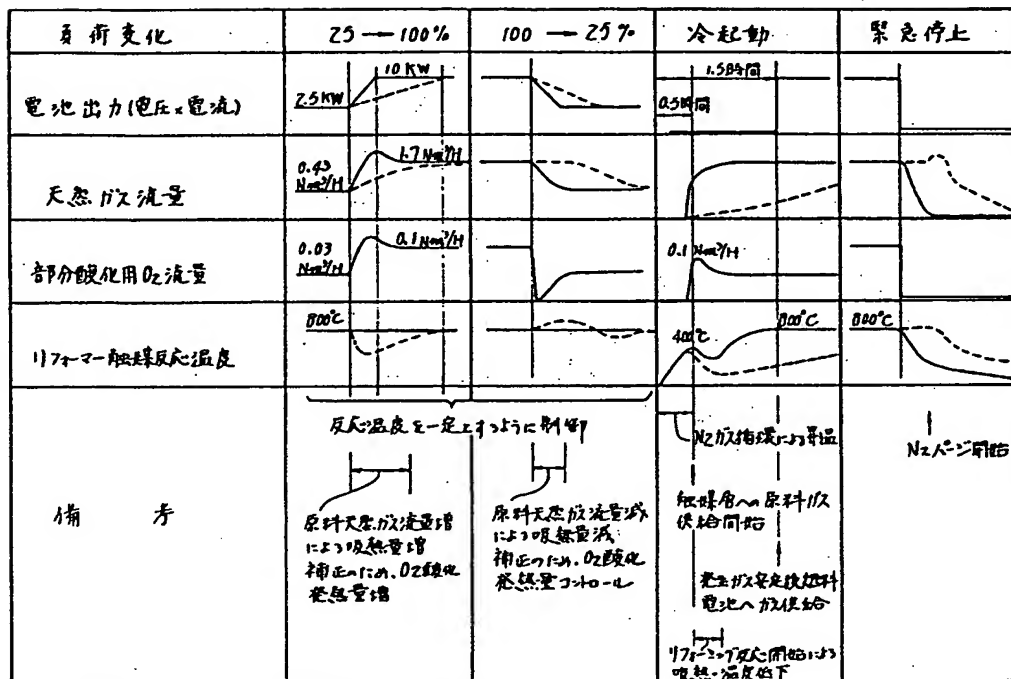 負荷変化
25→100%
100→25%
冷起動
緊急停止
電池出力(電圧×電流)
2.5KW
10KW
1.5時間
0.5時間
天然ガス流量
0.43
Nm³/H
1.7Nm³/H
部分酸化用O₂流量
0.03
Nm³/H
0.1Nm³/H
0.1Nm³/H
リフォーマー触媒反応温度
800℃
400℃
800℃
800℃
備考
反応温度を一定とするように制御
原料天然ガス流量増
による吸熱量増
補正のため、O2酸化
発熱量増
原料天然ガス流量減
による吸熱量減
補正のため、O2酸化
発熱量コントロール
N2ガス循環による昇温
触媒層への原料ガス
供給開始
発生ガス安定後燃料
電池へガス供給
リフォーミング反応開始による
吸熱・温度低下
N2パージ開始